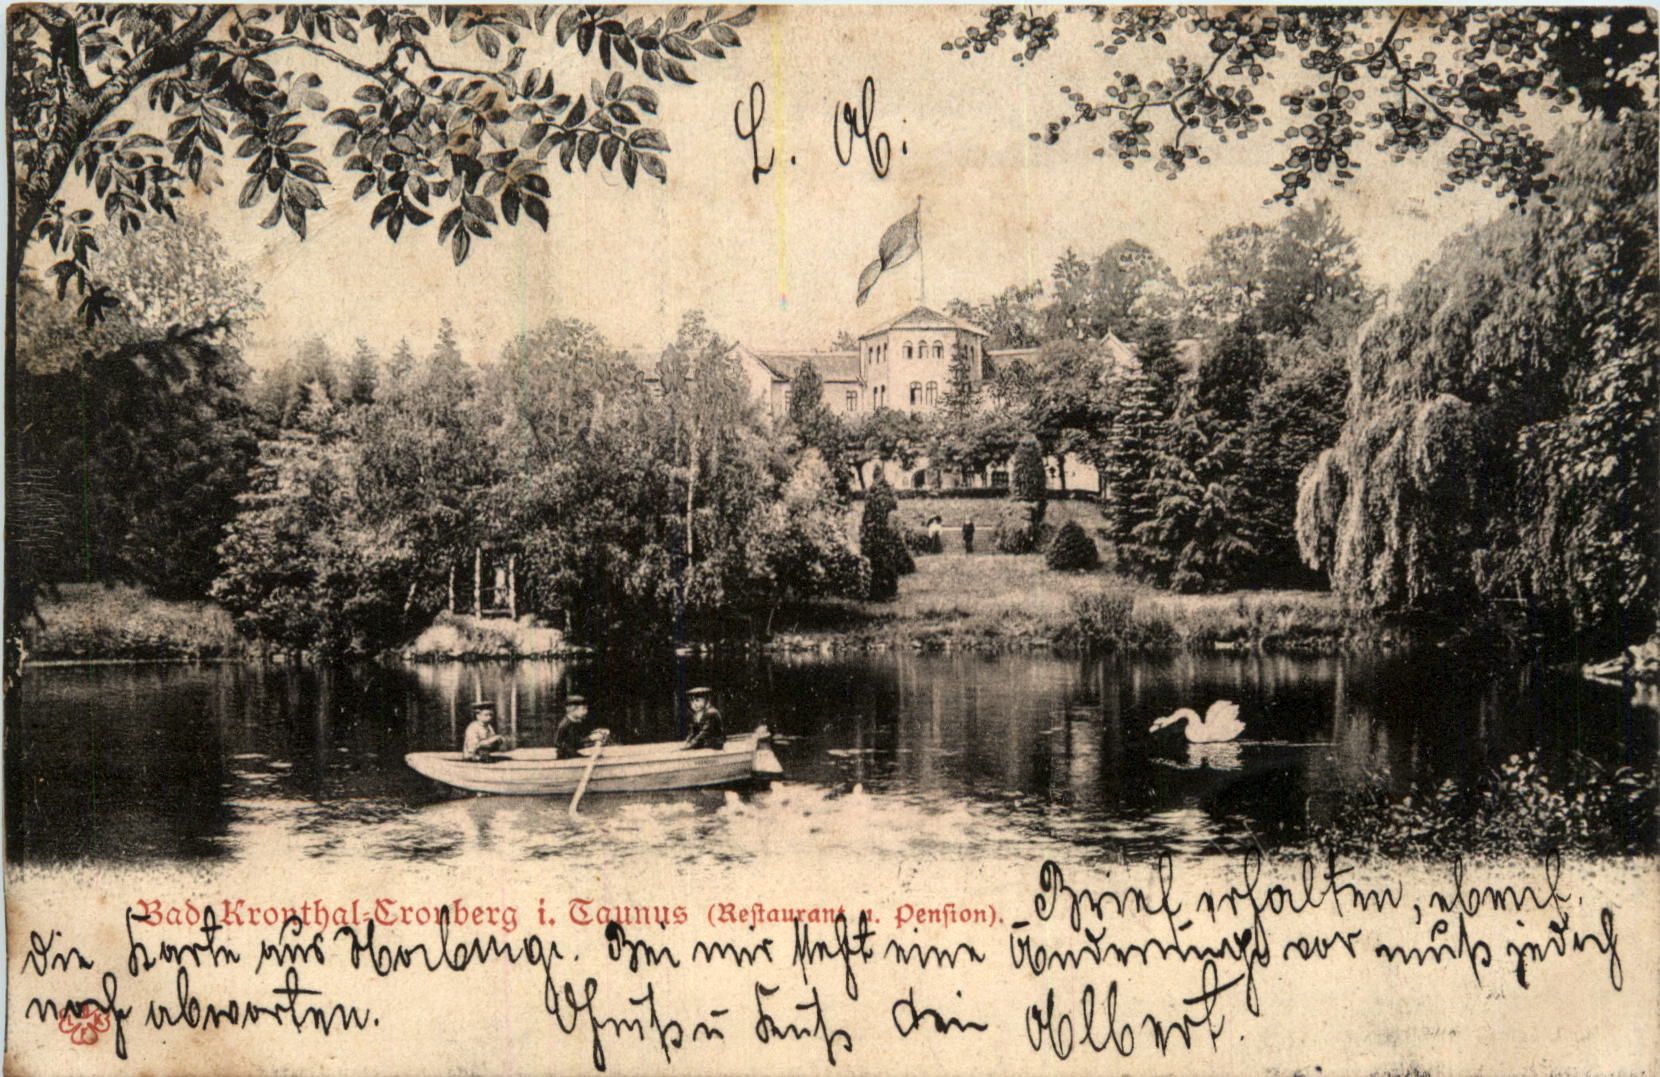 L. A.
Bad Kronthal-Cronberg i. Taunus (Restaurant u. Pension).
Brief erhalten, ebenf.
die Karte aus. Bei mir steht eine Änderung vor muß jedoch
noch abwarten. Gruß u Kuß dein Albert.